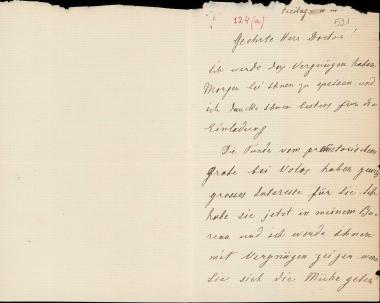 Freitag
124(a)
Geehrte Herr Doctor!
Ich werde das Vergnügen haben
Morgen bei Ihnen zu speisen und
ich danke Ihnen bestens für die
Einladung
Die Funde vom prähistorischen
Grabe bei Volos haben gewiss
grosses Interesse für Sie. Ich
habe sie jetzt in meinem Bu-
reau und ich werde Ihnen
mit Vergnügen zeigen wenn
Sie sich die Mühe geben